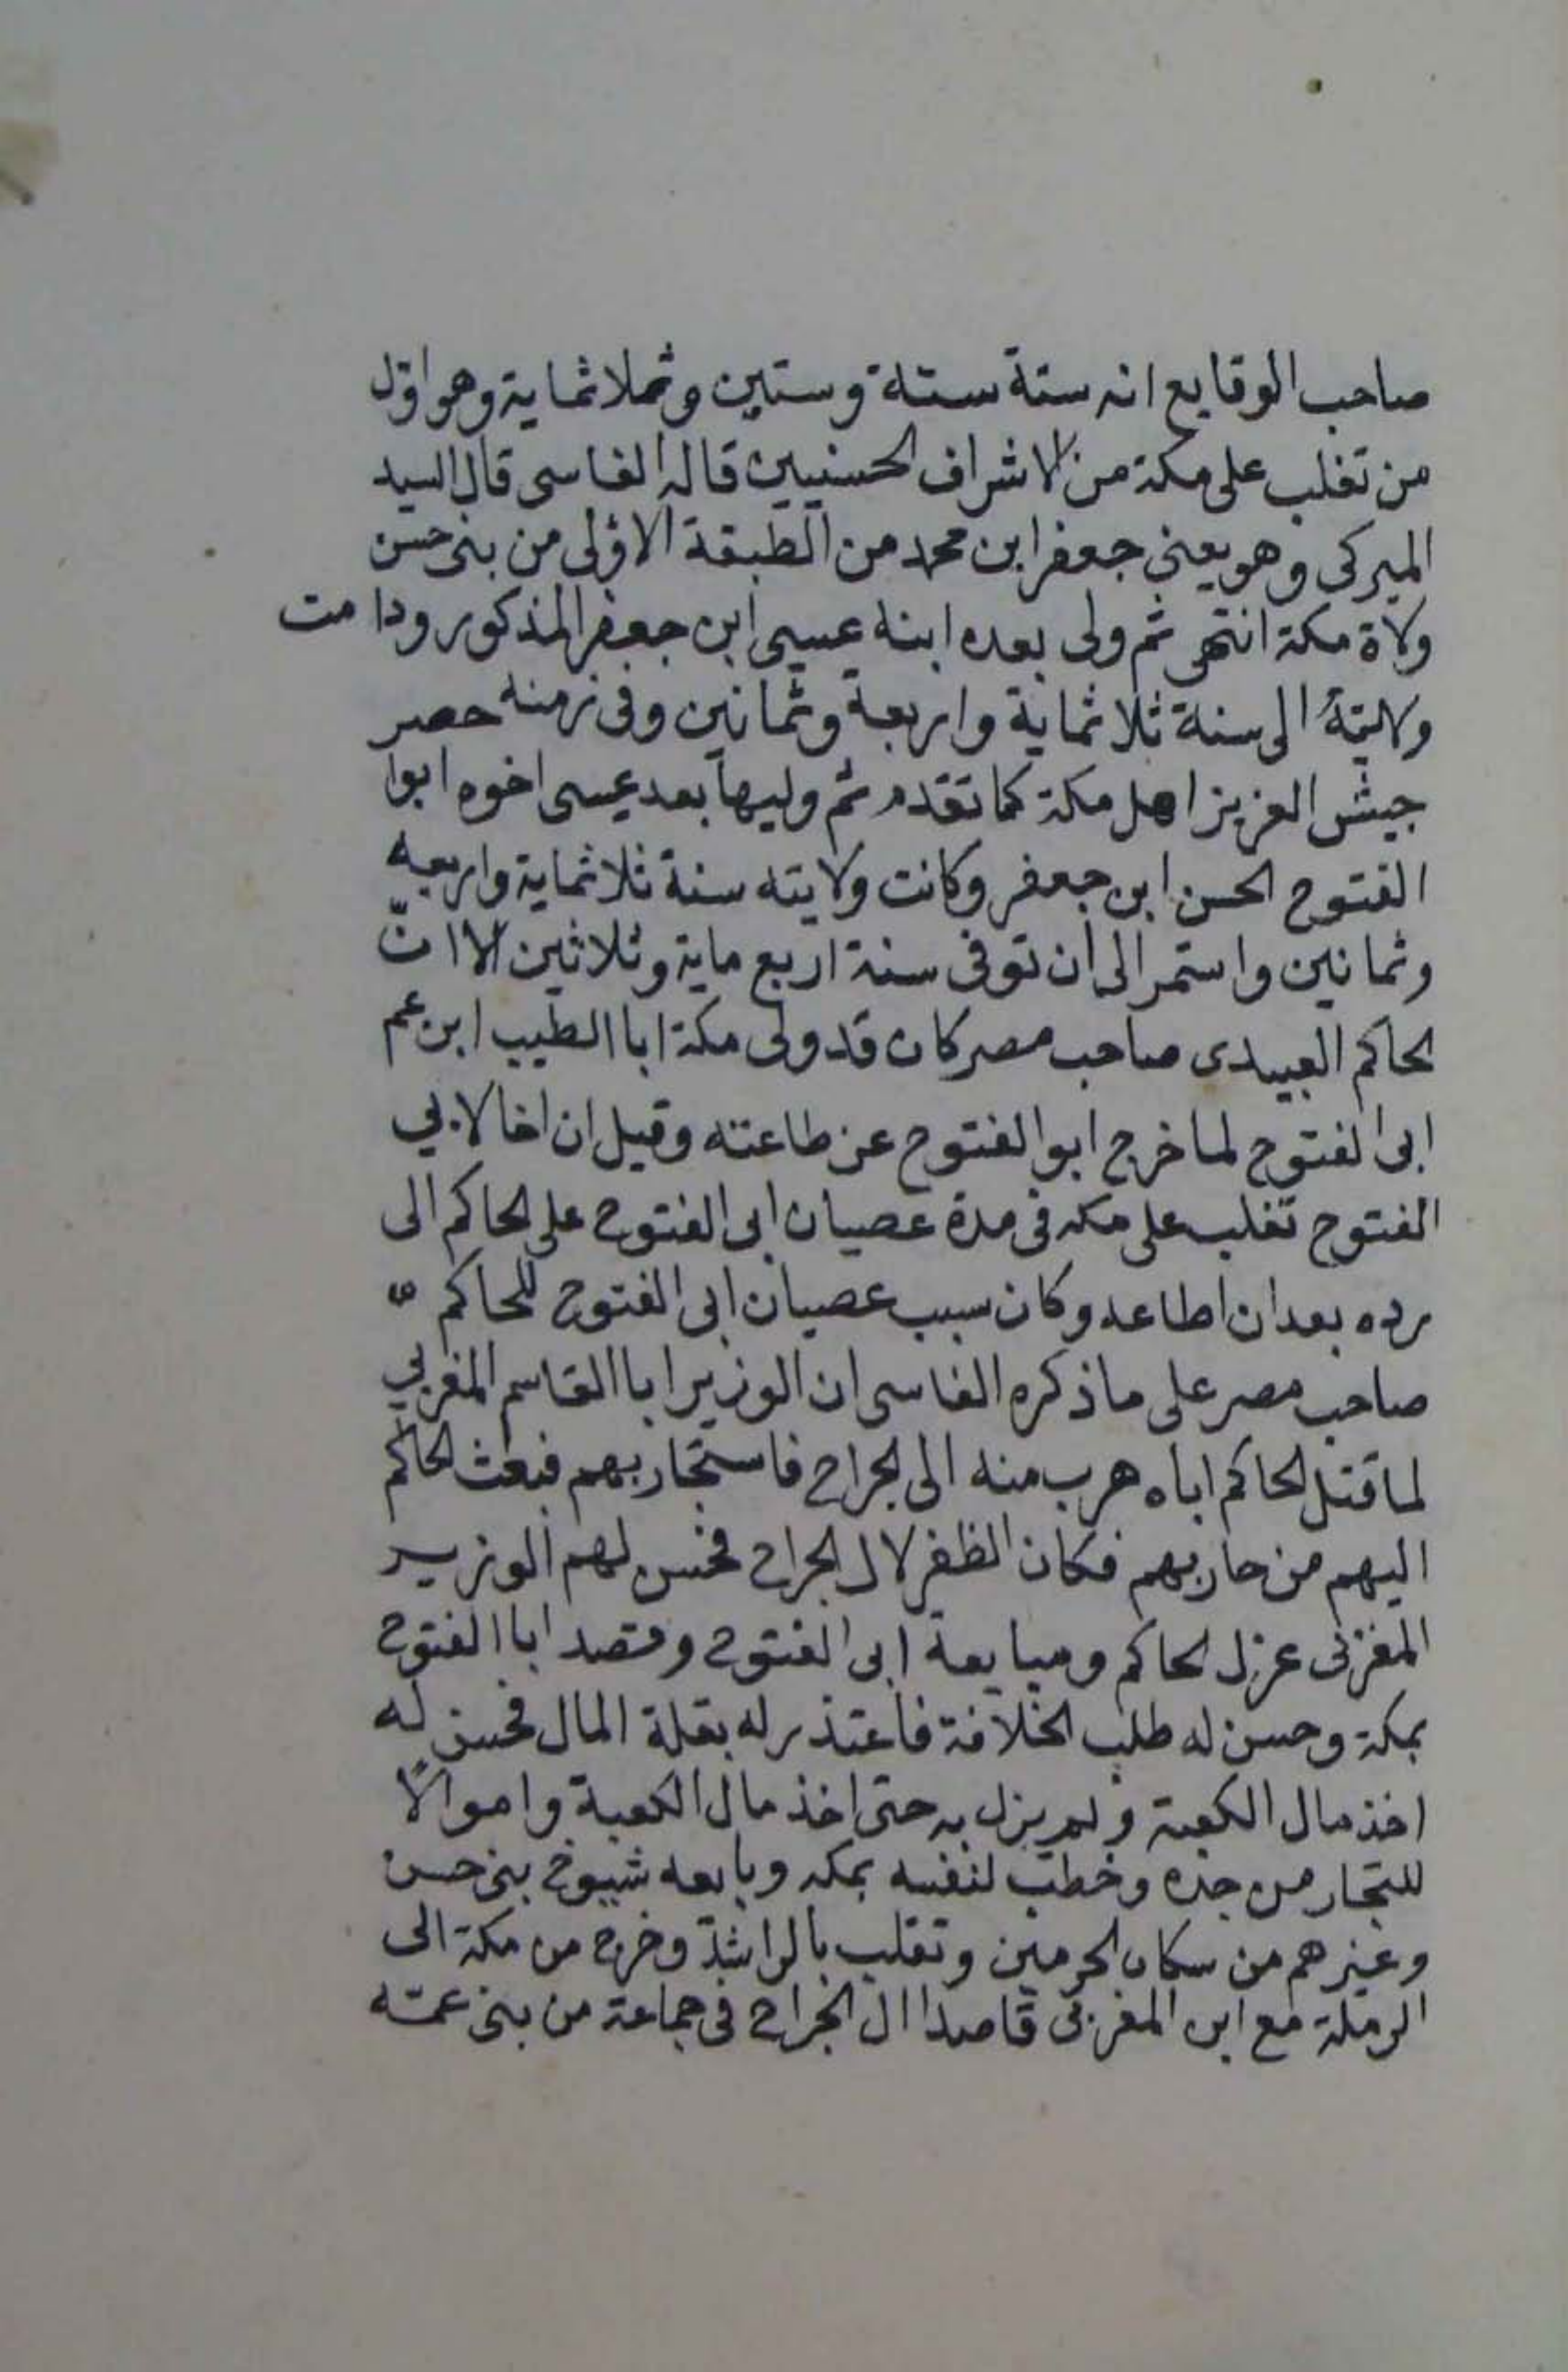 صاحب الوقايع انه ستة ستة وستين وثملاثماية وهو اوّل
من تغلب على مكة من الاشراف الحسنيين قاله الفاسى قال السيد
الميركى وهو يعنى جعفر ابن محمد من الطبقة الاولى من بنى حسن
ولاة مكة انتهى ثم ولى بعده ابنه عيسى ابن جعفر المذكور ودامت
ولايته الى سنة ثلاثماية واربعة وثمانين وفى زمنه حصر
جيش العزيز اهل مكة كما تقدم ثم وليها بعد عيسى اخوه ابوا
الفتوح الحسن ابن جعفر وكانت ولايته سنة ثلاثماية واربعه
وثمانين واستمر الى ان توفى سنة اربع ماية وثلاثين الا انّ
لحاكم العبيدى صاحب مصر كان قد ولى مكة ابا الطيب ابن عم
ابى الفتوح لما خرج ابو الفتوح عن طاعته وقيل ان اخا لابي
الفتوح تغلب على مكه فى مدة عصيان ابى الفتوح على لحاكم الى
رده بعد ان اطاعه وكان سبب عصيان ابى الفتوح للحاكم
صاحب مصر على ما ذكره الفاسى ان الوزير ابا القاسم المغربي
لما قتل لحاكم اباه هرب منه الى لجراح فاستجار بهم فبعث لحاكم
اليهم من حاربهم فكان الظفر لال لجراح فحسن لهم الوزير
المغزنى عزل لحاكم ومبايعة ابى الفتوح وقصد ابا الفتوح
بمكة وحسن له طلب الخلافة فاعتذر له بقلة المال فحسن له
اخذ مال الكعبة ولم يزل به حتى اخذ مال الكعبة واموالًا
للتجار من جده وخطب لنفسه بمكه وبايعه شيوخ بنى حسن
وغيرهم من سكان لحرمين وتقلب بالراشد وخرج من مكة الى
الرملة مع ابن المغربى قاصدا ال الجراح فى جماعة من بنى عمّه